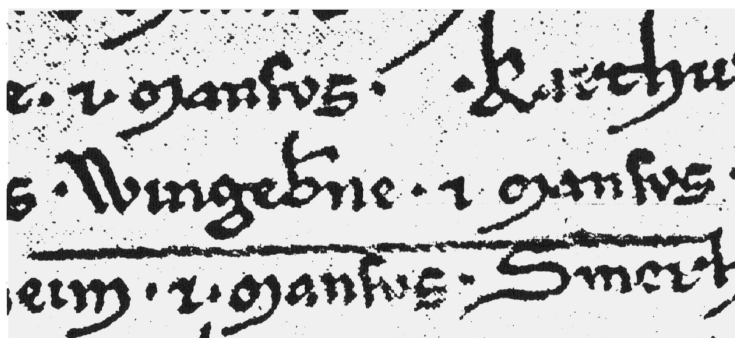 e · ⁊ · mansvs · · Kirchu
s · Wingebne · ⁊ mansvs ·
eim · ⁊ · mansvs · Smerh